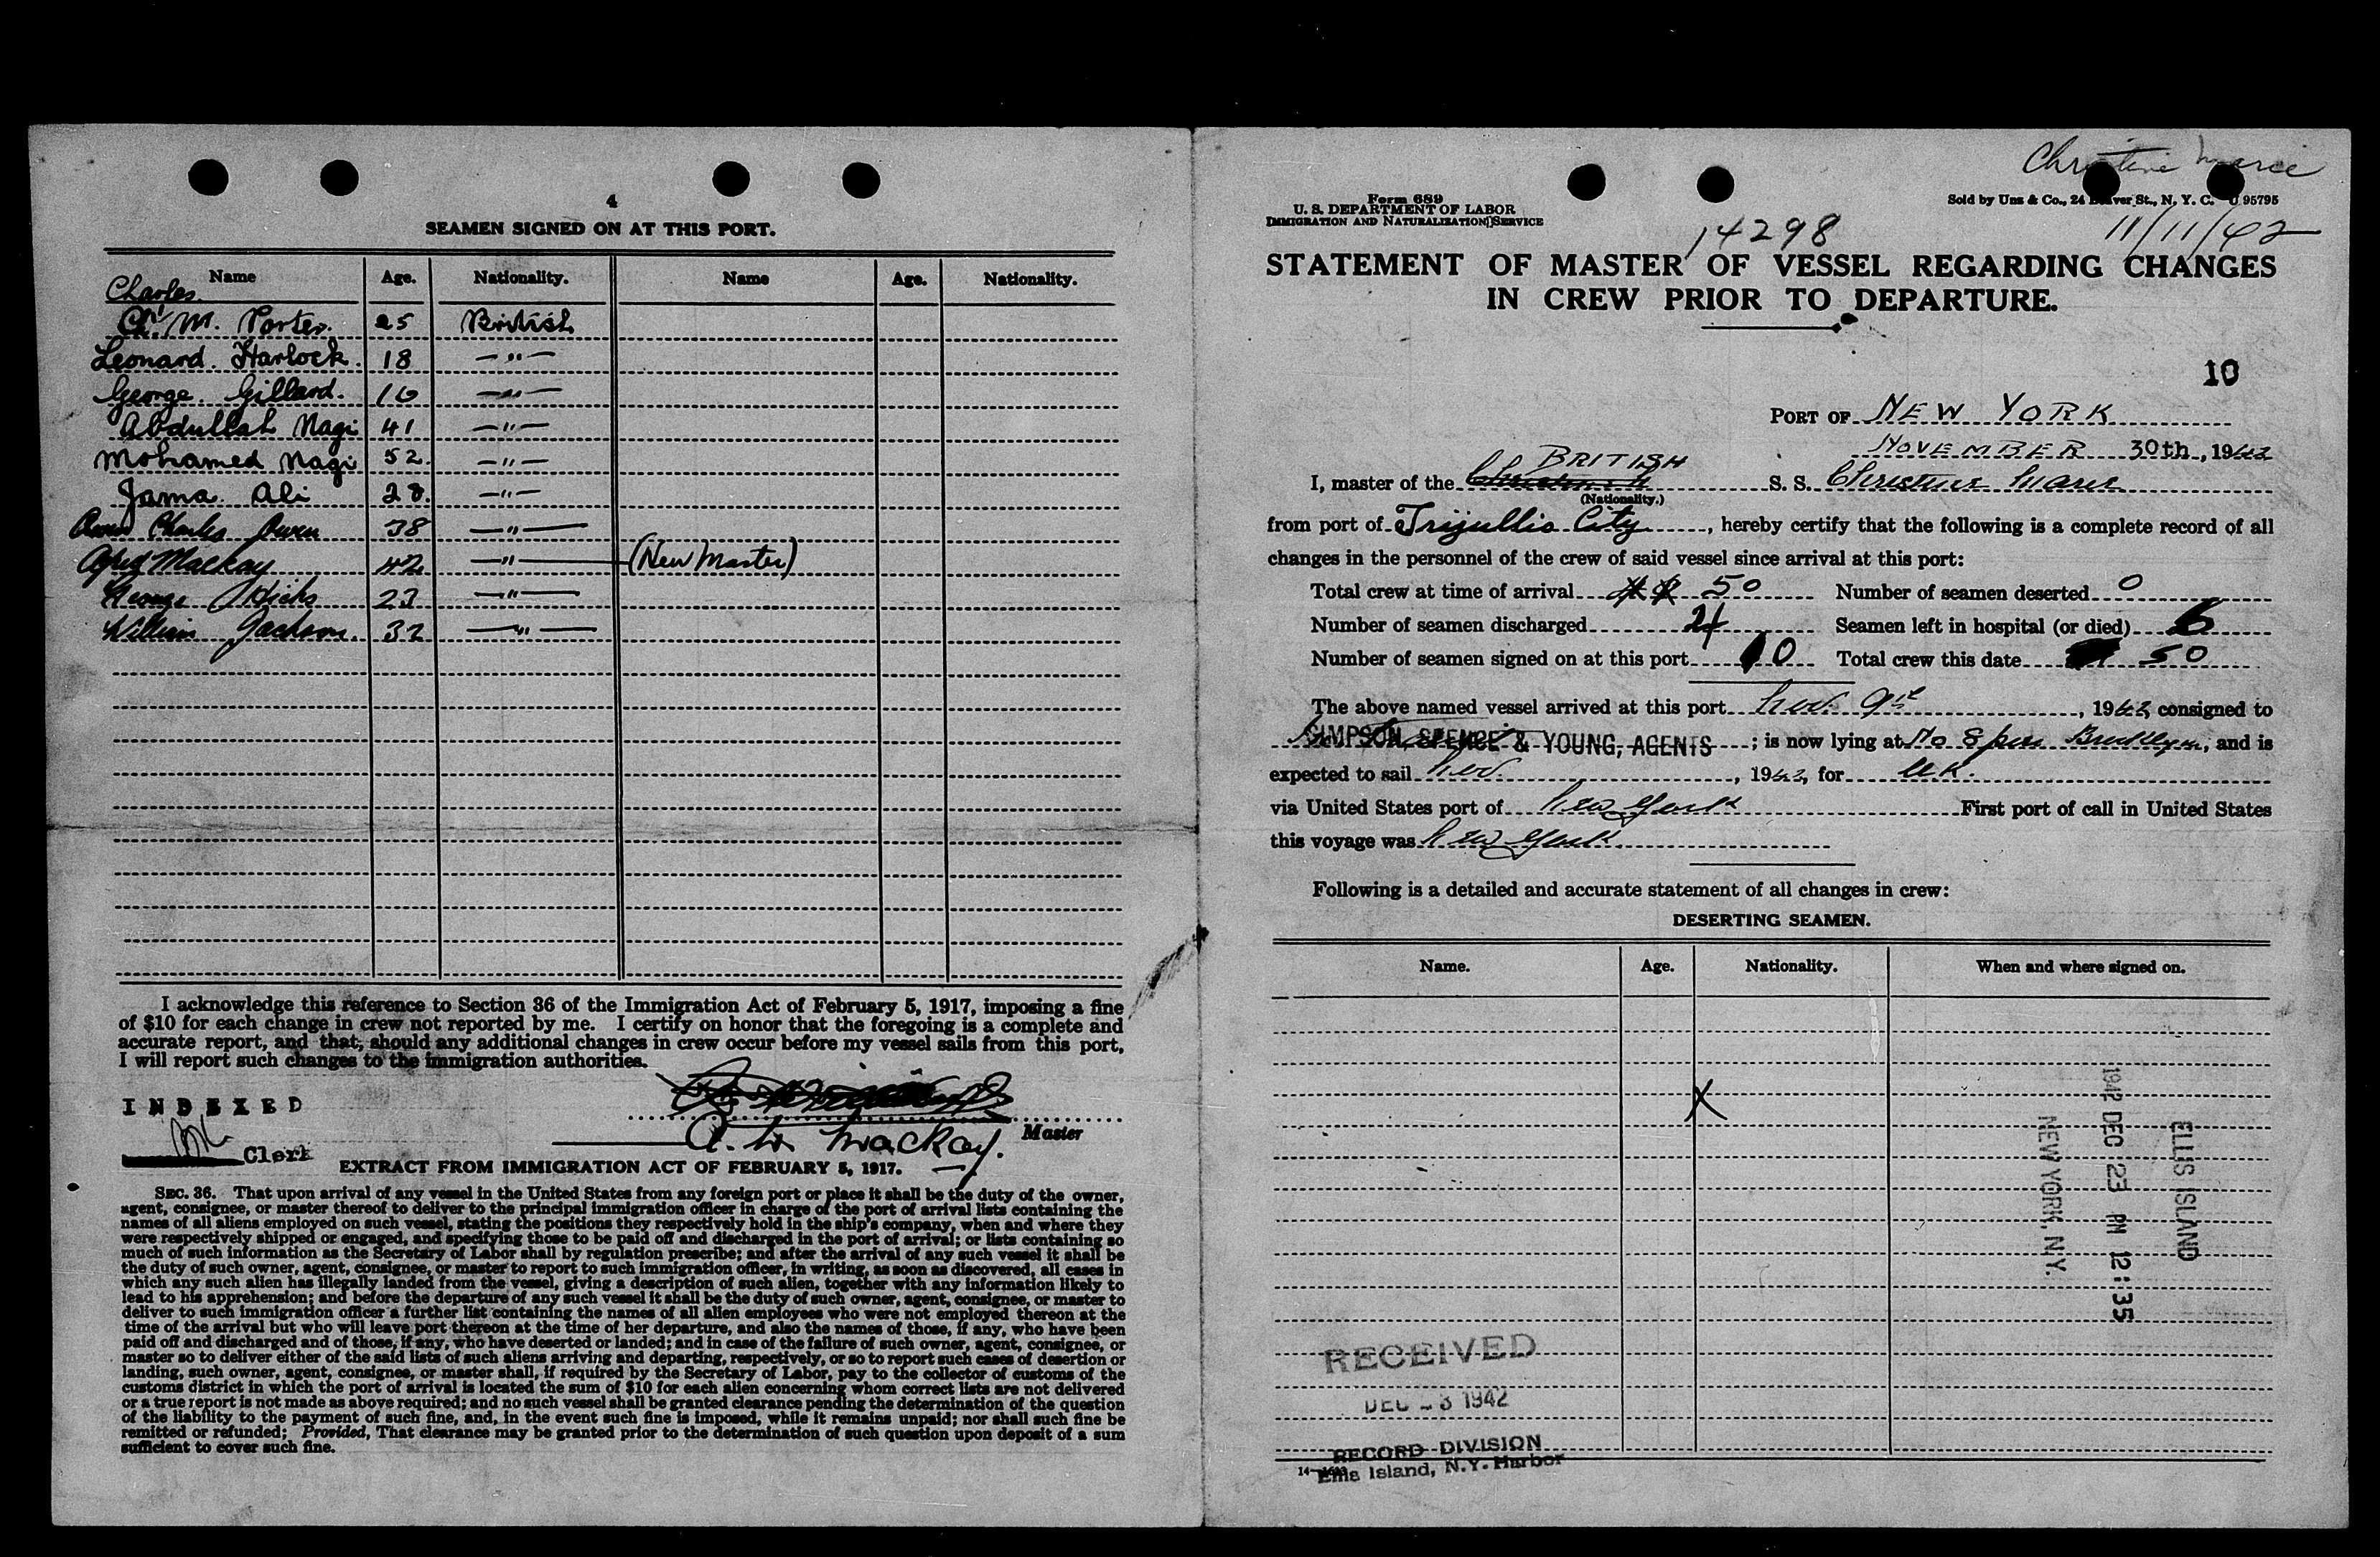 4
SEAMEN SIGNED ON AT THIS PORT.
Name Age. Nationality. Name Age. Nationality.
Charles
M. Porter. 25 British
Leonard. Harlock. 18 —"—
George. Gillard. 16 —"—
Abdullah Nagi 41 —"—
Mohamed Nagi 52. —"—
Jama. Ali 28. —"—
Charles Owen 38 —"—
Alfred Mackay 42 —"— (New Master)
George Hicks 23 —"—
William Jackson. 32 —"—
I acknowledge this reference to Section 36 of the Immigration Act of February 5, 1917, imposing a fine
of $10 for each change in crew not reported by me. I certify on honor that the foregoing is a complete and
accurate report, and that, should any additional changes in crew occur before my vessel sails from this port,
I will report such changes to the immigration authorities.
INDEXED
A. W. Mackay. Master
Clerk
EXTRACT FROM IMMIGRATION ACT OF FEBRUARY 5, 1917.
SEC. 36. That upon arrival of any vessel in the United States from any foreign port or place it shall be the duty of the owner,
agent, consignee, or master thereof to deliver to the principal immigration officer in charge of the port of arrival lists containing the
names of all aliens employed on such vessel, stating the positions they respectively hold in the ship's company, when and where they
were respectively shipped or engaged, and specifying those to be paid off and discharged in the port of arrival; or lists containing so
much of such information as the Secretary of Labor shall by regulation prescribe; and after the arrival of any such vessel it shall be
the duty of such owner, agent, consignee, or master to report to such immigration officer, in writing, as soon as discovered, all cases in
which any such alien has illegally landed from the vessel, giving a description of such alien, together with any information likely to
lead to his apprehension; and before the departure of any such vessel it shall be the duty of such owner, agent, consignee, or master to
deliver to such immigration officer a further list containing the names of all alien employees who were not employed thereon at the
time of the arrival but who will leave port thereon at the time of her departure, and also the names of those, if any, who have been
paid off and discharged and of those, if any, who have deserted or landed; and in case of the failure of such owner, agent, consignee, or
master so to deliver either of the said lists of such aliens arriving and departing, respectively, or so to report such cases of desertion or
landing, such owner, agent, consignee, or master shall, if required by the Secretary of Labor, pay to the collector of customs of the
customs district in which the port of arrival is located the sum of $10 for each alien concerning whom correct lists are not delivered
or a true report is not made as above required; and no such vessel shall be granted clearance pending the determination of the question
of the liability to the payment of such fine, and, in the event such fine is imposed, while it remains unpaid; nor shall such fine be
remitted or refunded; Provided, That clearance may be granted prior to the determination of such question upon deposit of a sum
sufficient to cover such fine.
Christine Marie
Form 689
U. S. DEPARTMENT OF LABOR
IMMIGRATION AND NATURALIZATION SERVICE
Sold by Unz & Co., 24 Beaver St., N. Y. C. U 95795
14298
11/11/42
STATEMENT OF MASTER OF VESSEL REGARDING CHANGES
IN CREW PRIOR TO DEPARTURE.
10
PORT OF NEW YORK
NOVEMBER 30th, 1942
BRITISH
I, master of the S. S. Christine Marie
(Nationality.)
from port of Trijullio City, hereby certify that the following is a complete record of all
changes in the personnel of the crew of said vessel since arrival at this port:
Total crew at time of arrival 50 Number of seamen deserted 0
Number of seamen discharged 4 Seamen left in hospital (or died) 6
Number of seamen signed on at this port 10 Total crew this date 50
The above named vessel arrived at this port Nov. 9th, 1942, consigned to
SIMPSON, SPENCE & YOUNG, AGENTS; is now lying at No 8 pier Brooklyn, and is
expected to sail Nov., 1942, for U.K.
via United States port of New York First port of call in United States
this voyage was New York
Following is a detailed and accurate statement of all changes in crew:
DESERTING SEAMEN.
Name. Age. Nationality. When and where signed on.
X
ELLIS ISLAND
1942 DEC 23 PM 12:35
NEW YORK, N.Y.
RECEIVED
DEC - 3 1942
RECORD DIVISION
Ellis Island, N.Y. Harbor